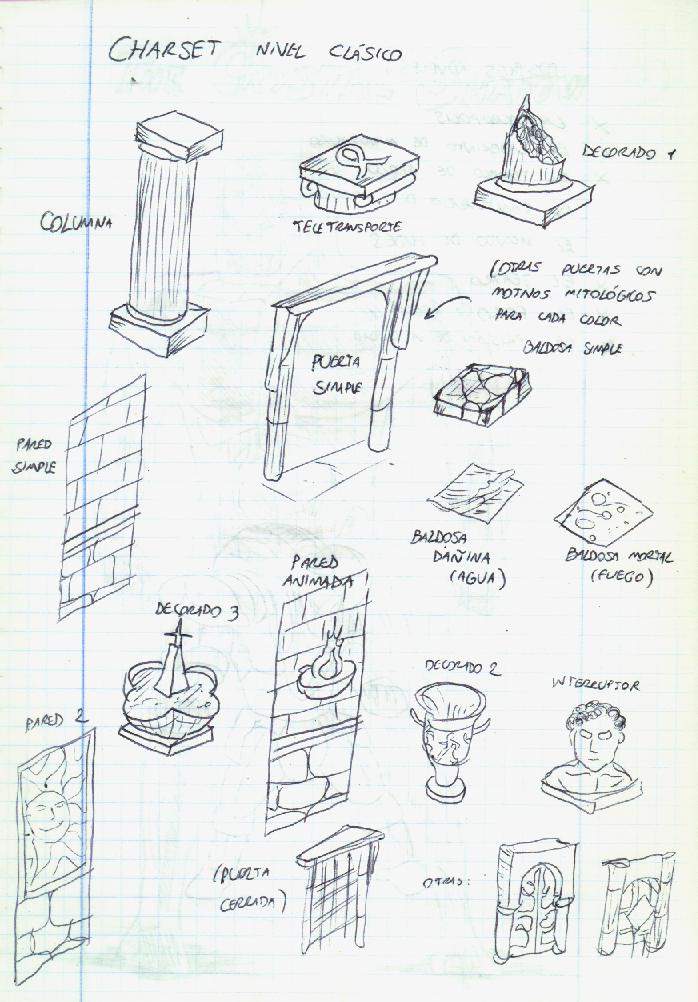 CHARSET NIVEL CLÁSICO
COLUMNA
TELETRANSPORTE
DECORADO 1
(OTRAS PUERTAS CON
MOTIVOS MITOLÓGICOS
PARA CADA COLOR
PUERTA
SIMPLE
BALDOSA SIMPLE
PARED
SIMPLE
BALDOSA
DAÑINA
(AGUA)
BALDOSA MORTAL
(FUEGO)
PARED
ANIMADA
DECORADO 3
DECORADO 2
INTERRUPTOR
PARED 2
(PUERTA
CERRADA)
OTRAS: